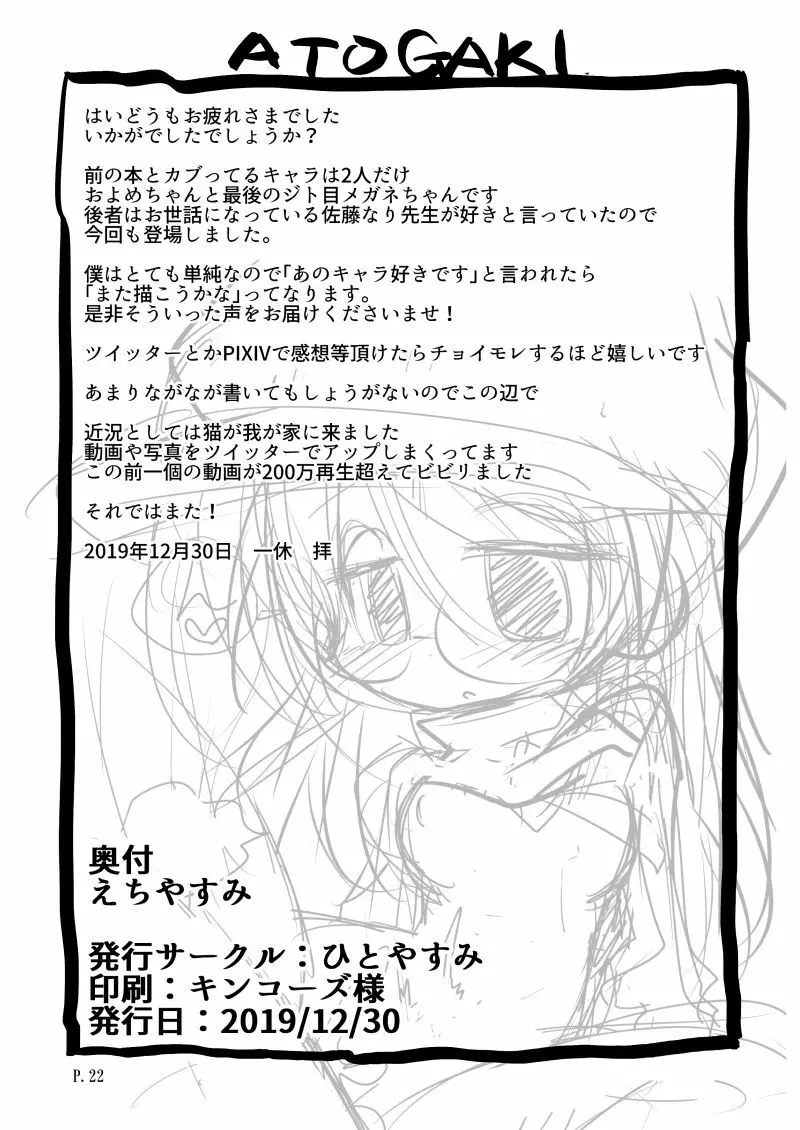 ATOGAKI
はいどうもお疲れさまでした
いかがでしたでしょうか？
前の本とカブってるキャラは2人だけ
およめちゃんと最後のジト目メガネちゃんです
後者はお世話になっている佐藤なり先生が好きと言っていたので
今回も登場しました。
僕はとても単純なので「あのキャラ好きです」と言われたら
「また描こうかな」ってなります。
是非そういった声をお届けくださいませ！
ツイッターとかPIXIVで感想等頂けたらチョイモレするほど嬉しいです
あまりながなが書いてもしょうがないのでこの辺で
近況としては猫が我が家に来ました
動画や写真をツイッターでアップしまくってます
この前一個の動画が200万再生超えてビビリました
それではまた！
2019年12月30日　一休　拝
奥付
えちやすみ
発行サークル：ひとやすみ
印刷：キンコーズ様
発行日：2019/12/30
P.22